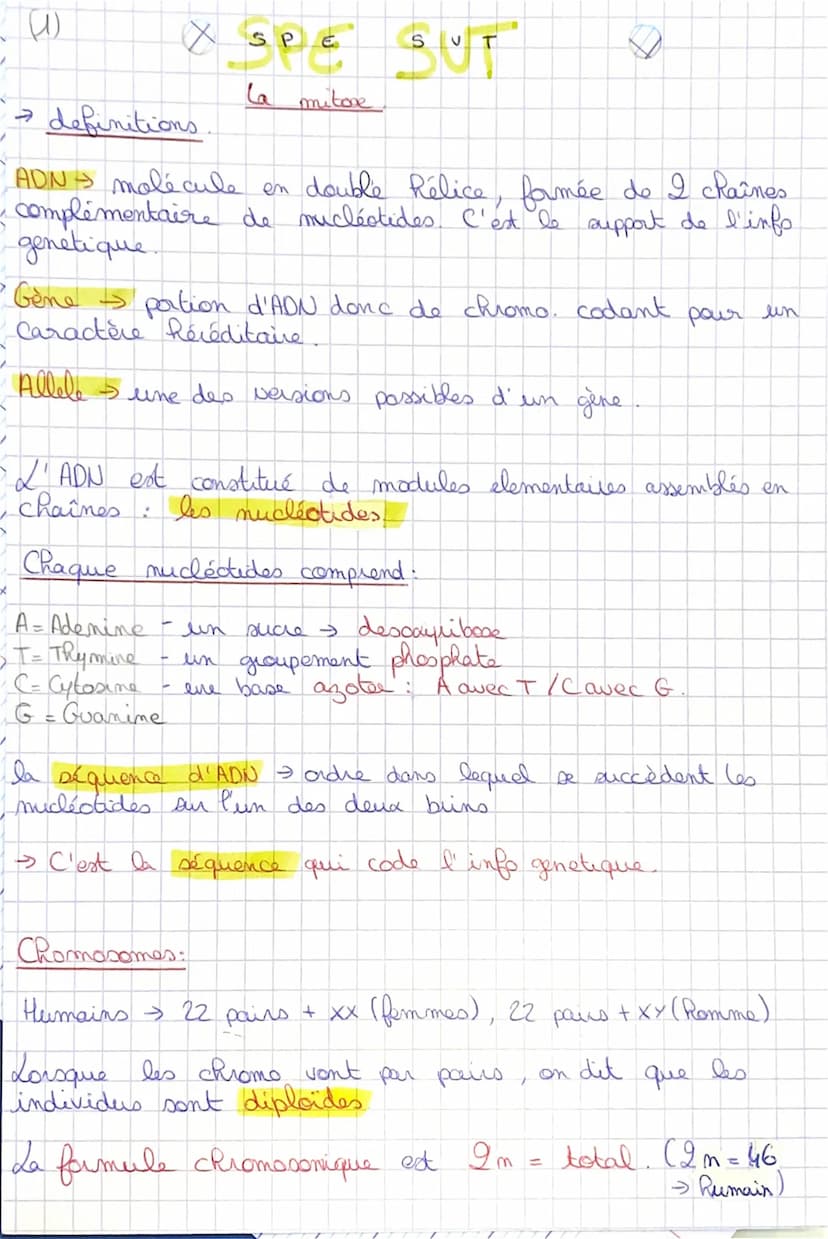 (1)
SPE SUT
SPE SVT
La mitose
→ definitions.
ADN → molécule en double hélice, formée de 2 chaînes
complémentaire de nucléotides. C'est le support de l'info
genetique.
Gène → portion d'ADN donc de chromo. codant pour un
caractère héréditaire.
Allele → une des versions possibles d'un gène.
L'ADN est constitué de modules elementaires assemblés en
chaînes : les nucléotides.
Chaque nucléotides comprend :
A = Adenine - un sucre → desoxyribose
T = Thymine - un groupement phosphate
C = Cytosine - une base azotée : A avec T / C avec G.
G = Guanine
la séquence d'ADN → ordre dans lequel se succèdent les
nucléotides sur l'un des deux brins
→ C'est la séquence qui code l'info genetique.
Chromosomes :
Humains → 22 pairs + XX (femmes), 22 pairs + XY (homme)
Lorsque les chromo vont par pairs, on dit que les
individus sont diploïdes
La formule chromosonique est 2n = total. (2n = 46
→ humain)